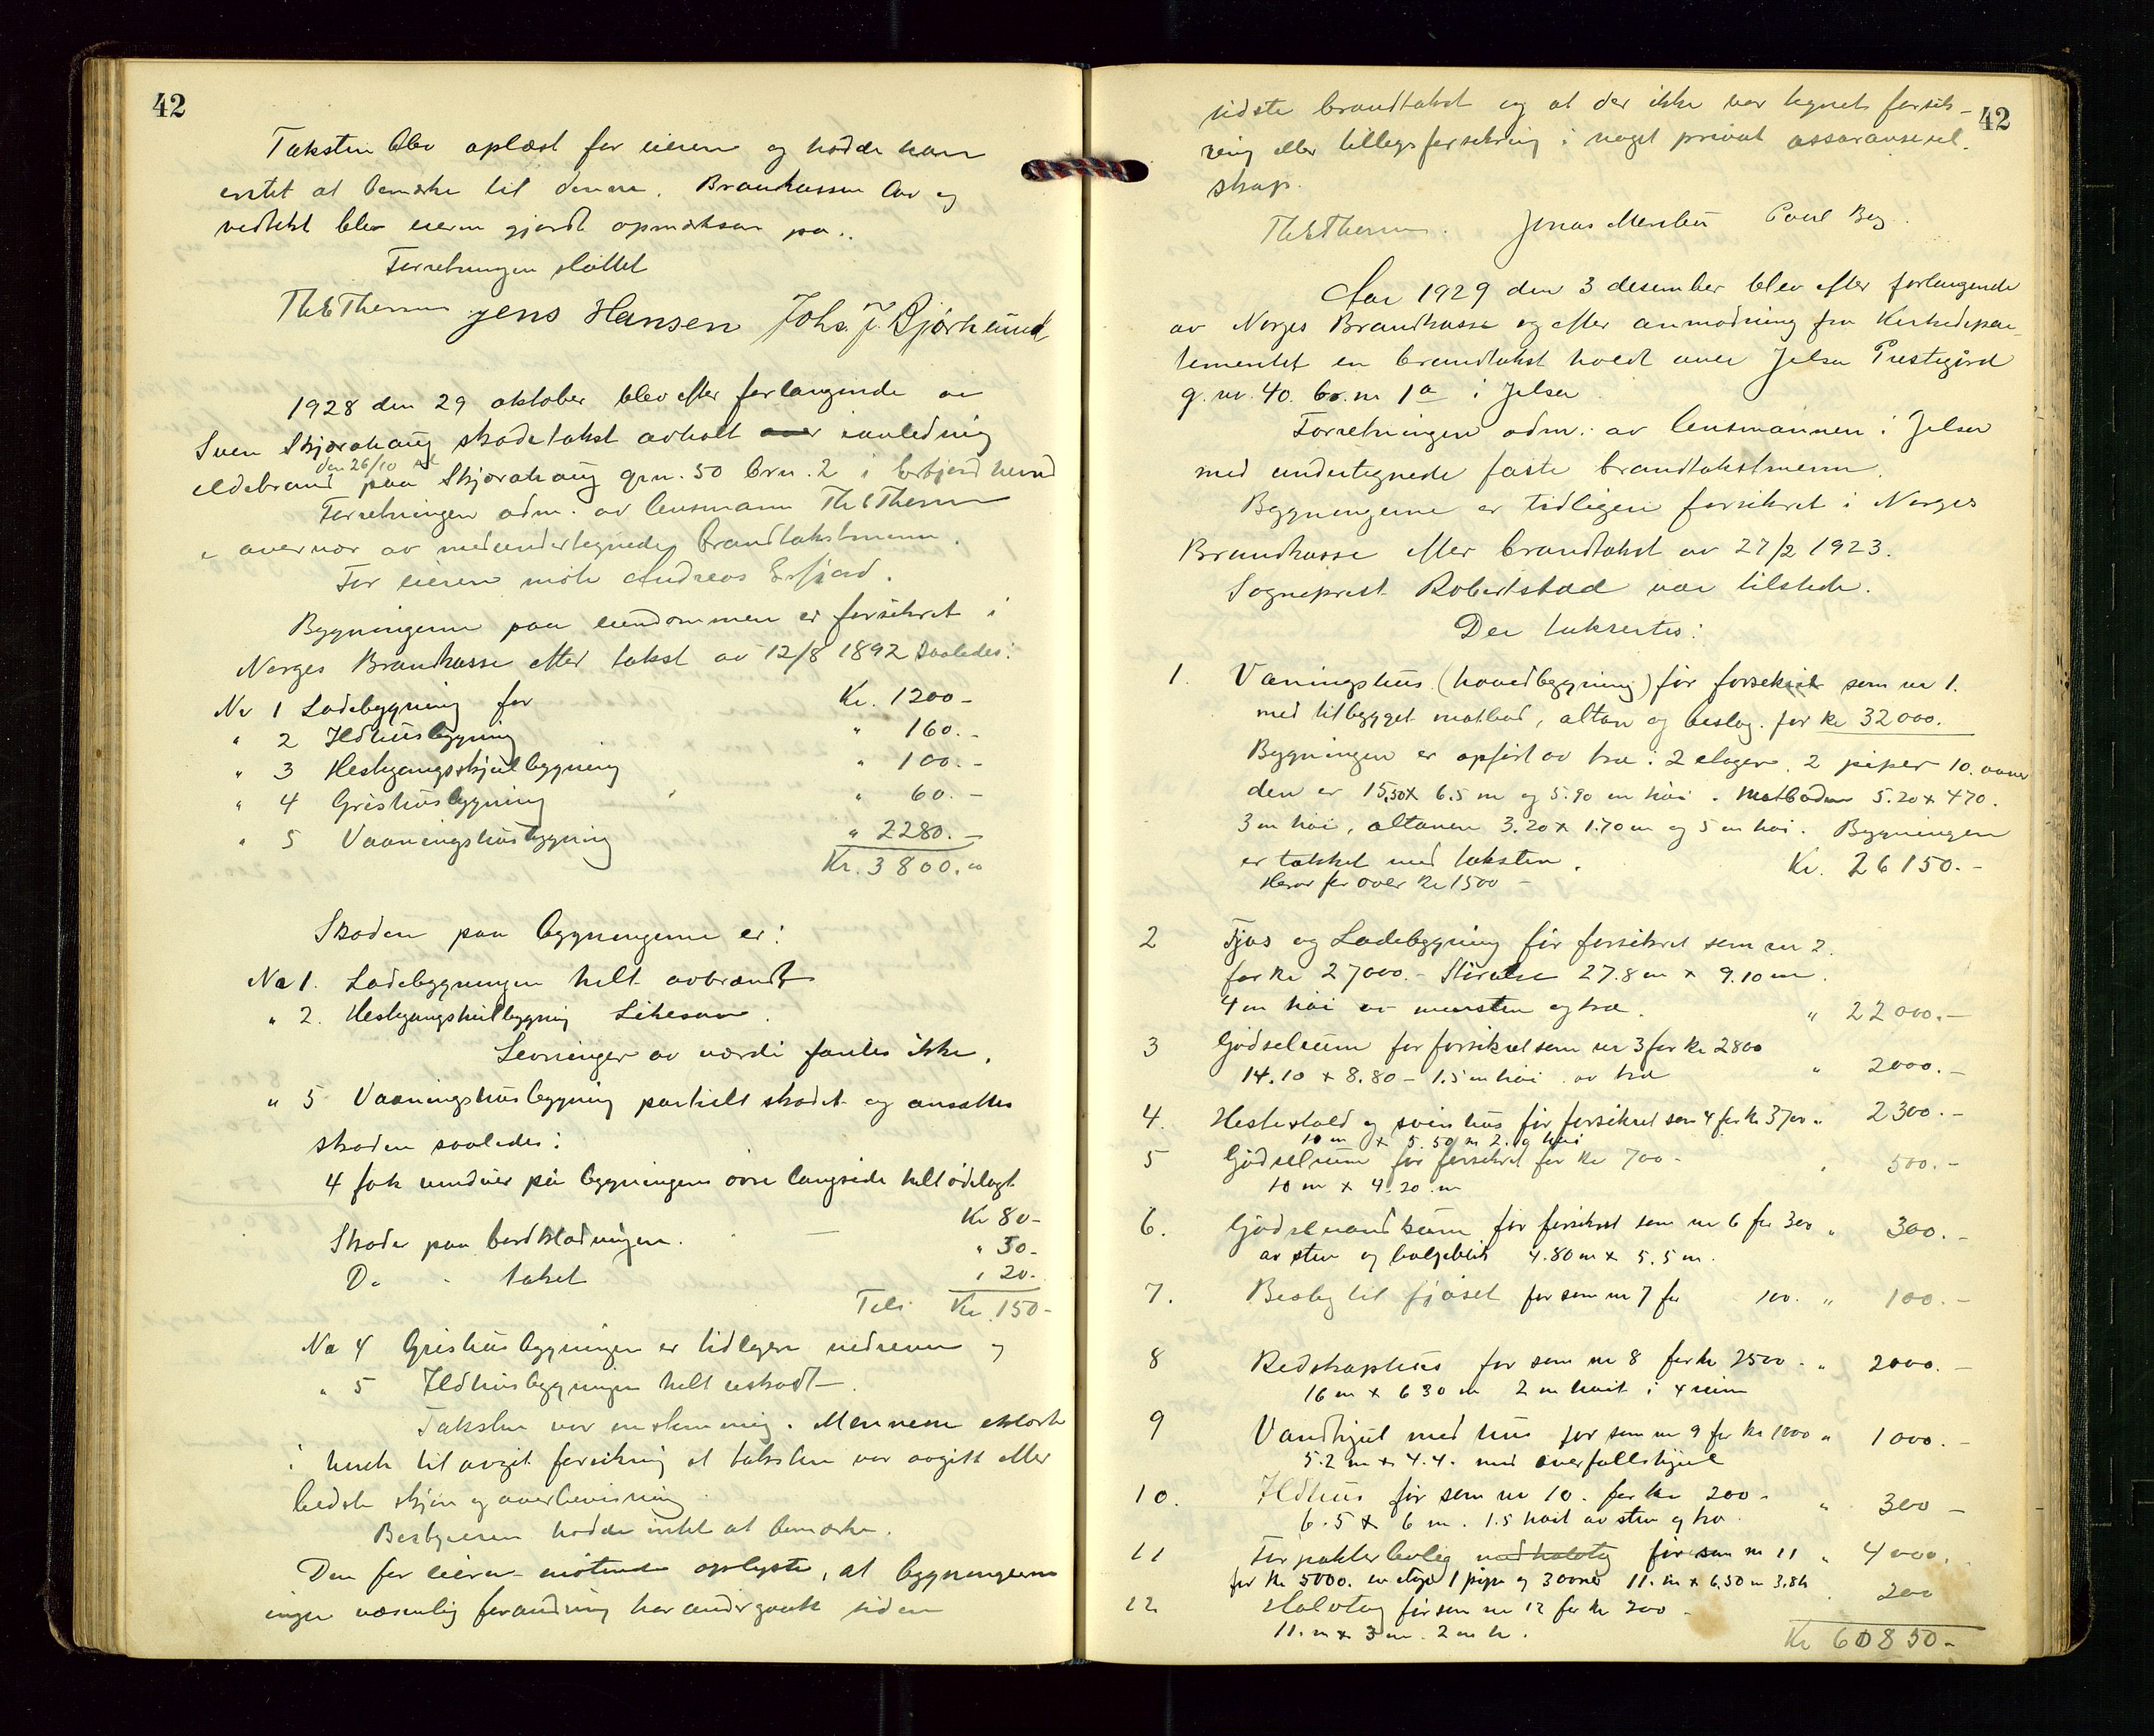 42
Taksten blev oplæst for eieren og hadde han
intet at bemærke til denne. Brankassen lov og
vedtekt blev eieren gjordt opmerksom pa..
Forretningen sluttet
Th E Thorsen Jens Hansen Johs. J. Bjørklund
1928 den 29 oktober blev efter forlangende av
Sven Skjørahaug skadetakst avholt over ianledning
den 26/10
ildebrand paa Skjørahaug grn. 50 brn. 2 i Erfjord herred
Forretningen adm. av lensmann Th E Thorsen
i overvær av medundertegnede brandtakstmenn.
For eieren møtte Andreas Erfjord.
Bygningerne paa eiendommen er forsikret i
Norges Brandkasse efter takst av 12/8 1892 saaledes:
Nr 1 Ladebygning for Kr. 1200-
" 2 Ildhusbygning " 160.-
" 3 Hestegangsskjulbygning " 100.-
" 4 Grishusbygning " 60.-
" 5 Vaaningshusbygning " 2280.-
Kr. 3800.00
Skaden paa bygningerne er:
No 1. Ladebygningen helt avbrændt
" 2. Hestegangshusbygning Likesaa.
Levninger av værdi fantes ikke.
" 5 Vaaningshusbygning partielt skadet og ansattes
skaden saaledes:
4 fok vinduer på bygningens øvre langside helt ødelagt
Kr 80-
Skader paa bordklædningen. " 50-
Do " taket " 20.-
Tils. Kr. 150-
No 4 Grishusbygningen er tidligere nedreven og
" 5 Ildhusbygningen helt uskadt.
Taksten var enstemmig. Mennene erklærte
i henh til avgit forsikring at taksten var avgitt efter
bedste skjøn og overbevisning.
Bestyreren hadde intet at bemærke.
Den for eieren møtende oplyste, at bygningerne
ingen væsenlig forandring har undergaatt siden
42
sidste brandtakst og at der ikke var tegnet forsik-
ring eller tillegsforsikring i noget privat assuransesel-
skap.
Th E Thorsen. Jonas Poul Berg.
Aar 1929 den 3 desember blev efter forlangende
av Norges Brandkasse og efter anmodning fra Kirkedepar-
tementet en brandtakst holdt over Jelsa Prestegård
g.nr. 40. br.nr 1a i Jelsa.
Forretningen adm. av lensmannen i Jelsa
med undertegnede faste brandtakstmenn.
Bygningerne er tidligere forsikret i Norges
Brandkasse efter brandtakst av 27/2 1923.
Sogneprest Robertstad var tilstede.
Der taksertes:
1. Våningshus (hovedbygning) før forsekret som nr 1.
med tilbygget matbod, altan og beslag. for kr 32000.
Bygningen er opført av træ i 2 etager. 2 piper 10. ovner
den er 15,50 x 6.5 m og 5.90 m høi. Matboden 5.20 x 470.
3 m høi, altanen 3.20 x 1.70 m og 5 m høi. Bygningen
er takket med taksten. Kr. 26150.-
Herav for over kr 1500-
2 Fjøs og Ladebygning før forsikret som nr 2.
for kr 27000.- Størelse 27.8 m x 9.10 m.
4 m høi av mursten og træ. " 22000.-
3 Gjødselrum før forsikret som nr 3 for kr 2800
14.10 x 8.80 - 1.5 m høi av træ " 2000.-
4. Hestestald og svinhus før forsikret som 4 for kr 3700 " 2300.-
10 m x 5.50 m 2.9 høi
5 Gjødselrum før forsikret for kr 700- " 500.-
10 m x 4.20 m
6. Gjødselvandkum før forsikret som nr 6 for 300 " 300.-
av sten og bølgeblik 4.80 m x 5.5 m.
7. Beslag til fjøset før som nr 7 for 100. " 100.-
8 Redskaphus før som nr 8 for kr 2500- " 2000.-
16 m x 6 30 m 2 m høit i 4 rum
9 Vandhjul med hus før som nr 9 for kr 1000 " 1000.-
5.2 m x 4.4. med overfallshjul
10. Ildhus før som nr 10. for kr 200- " 300-
6.5 x 6 m. 1.5 høit av sten og træ.
11 Forpakterbolig med halvtag før som nr 11 " 4000.
for kr 5000. en etage 1 pipe og 3 ovner 11. m x 6,50 m 3.8h
12 Halvtag før som nr 12 for kr 200- 200
11. m x 3 m. 2 m h.
Kr 60850-